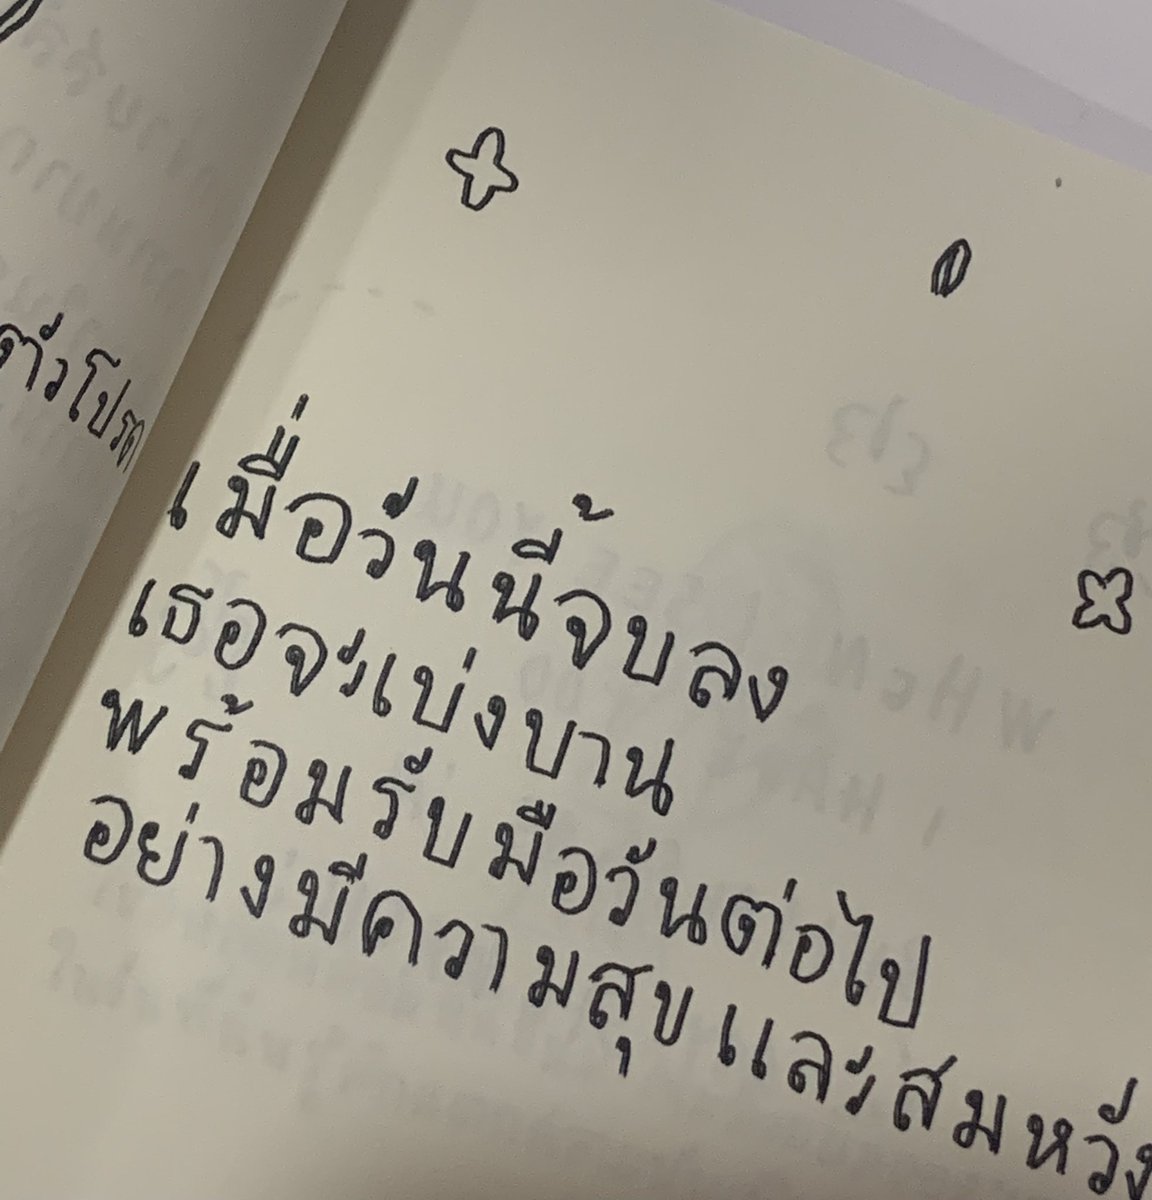 ตัวโปรด
เมื่อวันนี้จบลง
เธอจะเบ่งบาน
พร้อมรับมือวันต่อไป
อย่างมีความสุข และสมหวัง